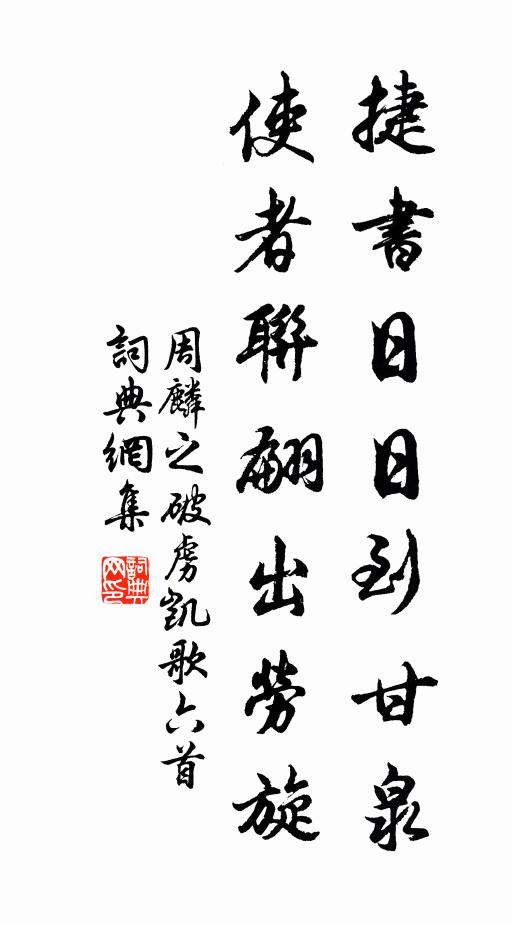 捷書日日到甘泉
使者聯翩出勞旋
周麟之破虜凱歌六首
詞典網集
詞典网印